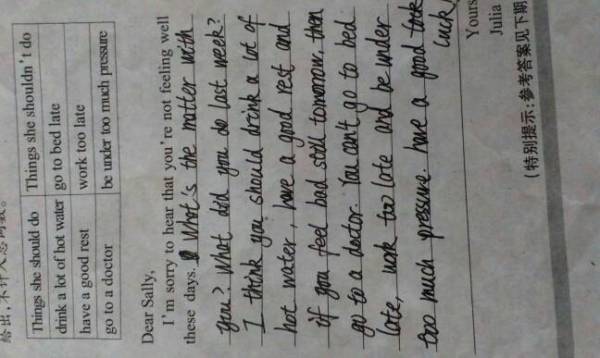 给出,不计入总词数。
Things she should do Things she shouldn't do
drink a lot of hot water go to bed late
have a good rest work too late
go to a doctor be under too much pressure
Dear Sally,
I'm sorry to hear that you're not feeling well
these days. What's the matter with
you? What did you do last week?
I think you should drink a lot of
hot water, have a good rest and
if you feel bad still tomorrow, then
go to a doctor. You can't go to bed
late, work too late and be under
too much pressure. have a good
luck
Yours
Julia
(特别提示:参考答案见下期